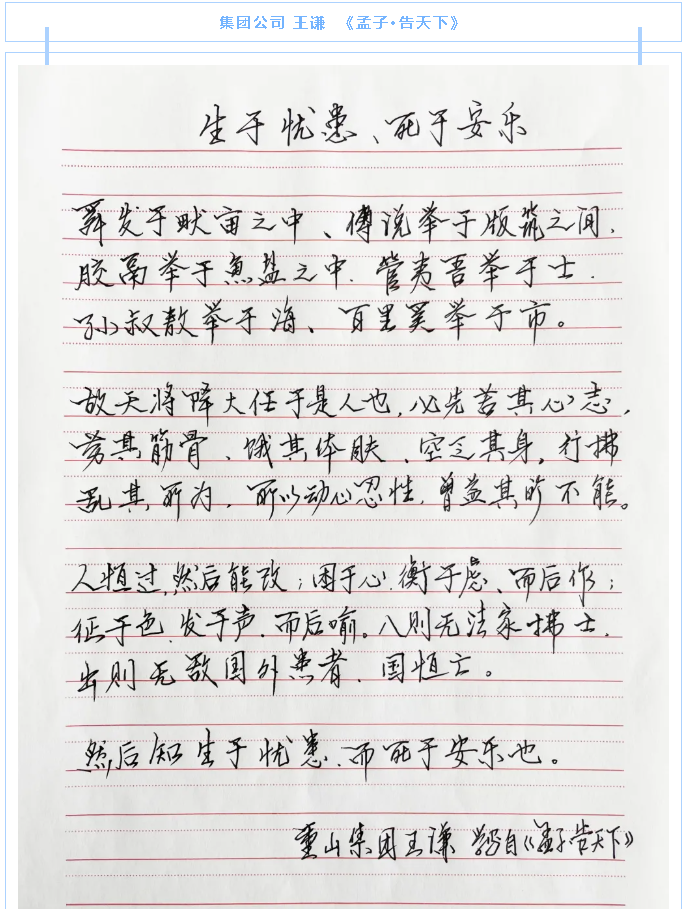 集团公司 王谦 《孟子•告天下》
生于忧患、死于安乐
舜发于畎亩之中、傅说举于版筑之间，
胶鬲举于鱼盐之中，管夷吾举于士，
孙叔敖举于海、百里奚举于市。
故天将降大任于是人也，必先苦其心志，
劳其筋骨、饿其体肤、空乏其身，行拂
乱其所为，所以动心忍性，曾益其所不能。
人恒过，然后能改；困于心，衡于虑、而后作；
征于色，发于声，而后喻。入则无法家拂士，
出则无敌国外患者，国恒亡。
然后知生于忧患、而死于安乐也。
重山集团王谦 自《孟子·告天下》